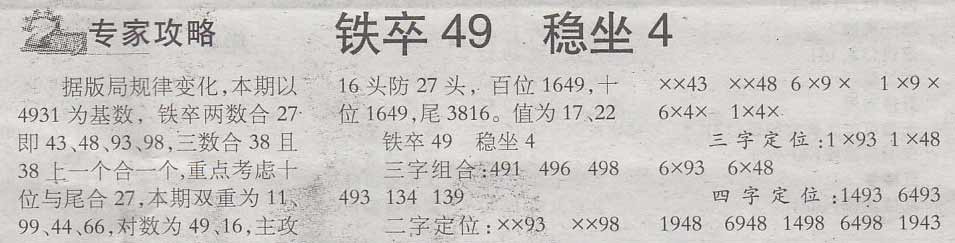 专家攻略
铁卒49 稳坐4
据版局规律变化,本期以
4931为基数,铁卒两数合27
即43、48、93、98,三数合38且
38上一个合一个,重点考虑十
位与尾合27,本期双重为11、
99、44、66,对数为49、16,主攻
16头防27头,百位1649,十
位1649,尾3816。值为17、22
铁卒49 稳坐4
三字组合:491 496 498
493 134 139
二字定位:××93 ××98
××43 ××48 6×9× 1×9×
6×4× 1×4×
三字定位:1×93 1×48
6×93 6×48
四字定位:1493 6493
1948 6948 1498 6498 1943